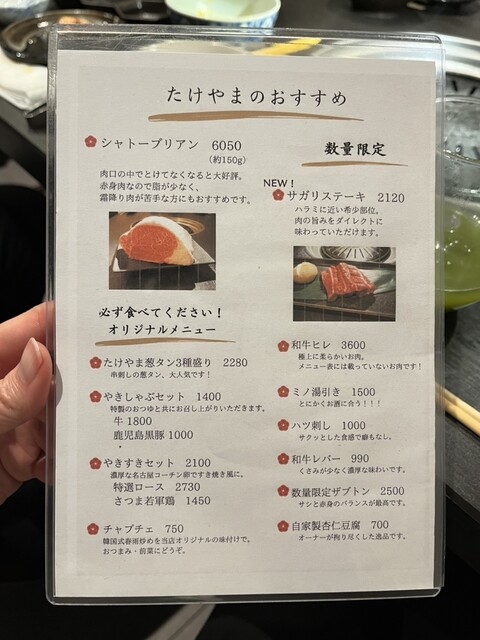 たけやまのおすすめ
シャトーブリアン 6050
(約150g)
肉口の中でとけてなくなると大好評。
赤身肉なので脂が少なく、
霜降り肉が苦手な方にもおすすめです。
必ず食べてください！
オリジナルメニュー
たけやま葱タン3種盛り 2280
串刺しの葱タン、大人気です！
やきしゃぶセット 1400
特製のおつゆと共にお召し上がりいただきます。
牛 1800
鹿児島黒豚 1000
やきすきセット 2100
濃厚な名古屋コーチン卵ですき焼き風に。
特選ロース 2730
さつま若軍鶏 1450
チャプチェ 750
韓国式春雨炒めを当店オリジナルの味付けで。
おつまみ・前菜にどうぞ。
数量限定
NEW！
サガリステーキ 2120
ハラミに近い希少部位。
肉の旨みをダイレクトに
味わっていただけます。
和牛ヒレ 3600
極上に柔らかいお肉。
メニュー表には載っていないお肉です！
ミノ湯引き 1500
とにかくお酒に合う！！！
ハツ刺し 1000
サクッとした食感で癖もなし。
和牛レバー 990
くさみが少なく濃厚な味わいです。
数量限定ザブトン 2500
サシと赤身のバランスが最高です。
自家製杏仁豆腐 700
オーナーが拘り尽くした逸品です。